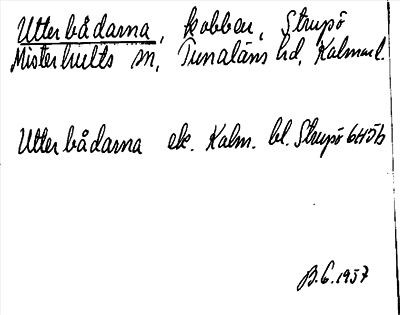 Utterbådarna, kobbar, Strupö
Misterhults sn, Tunaläns hd, Kalmar l.
Utterbådarna ek. Kalm. bl. Strupö 6H5b
B.G. 1937